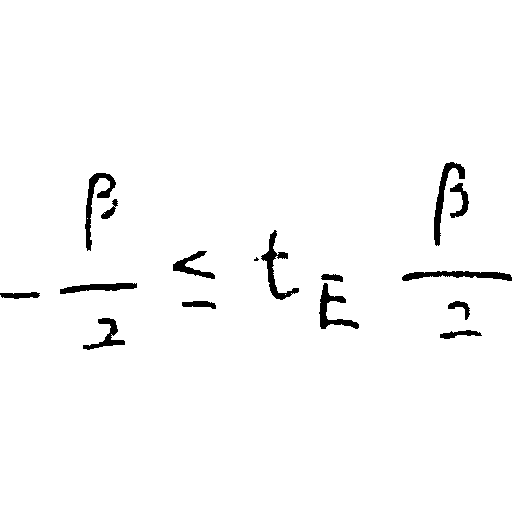 $-\frac{\beta}{2} \leq t_E \frac{\beta}{2}$